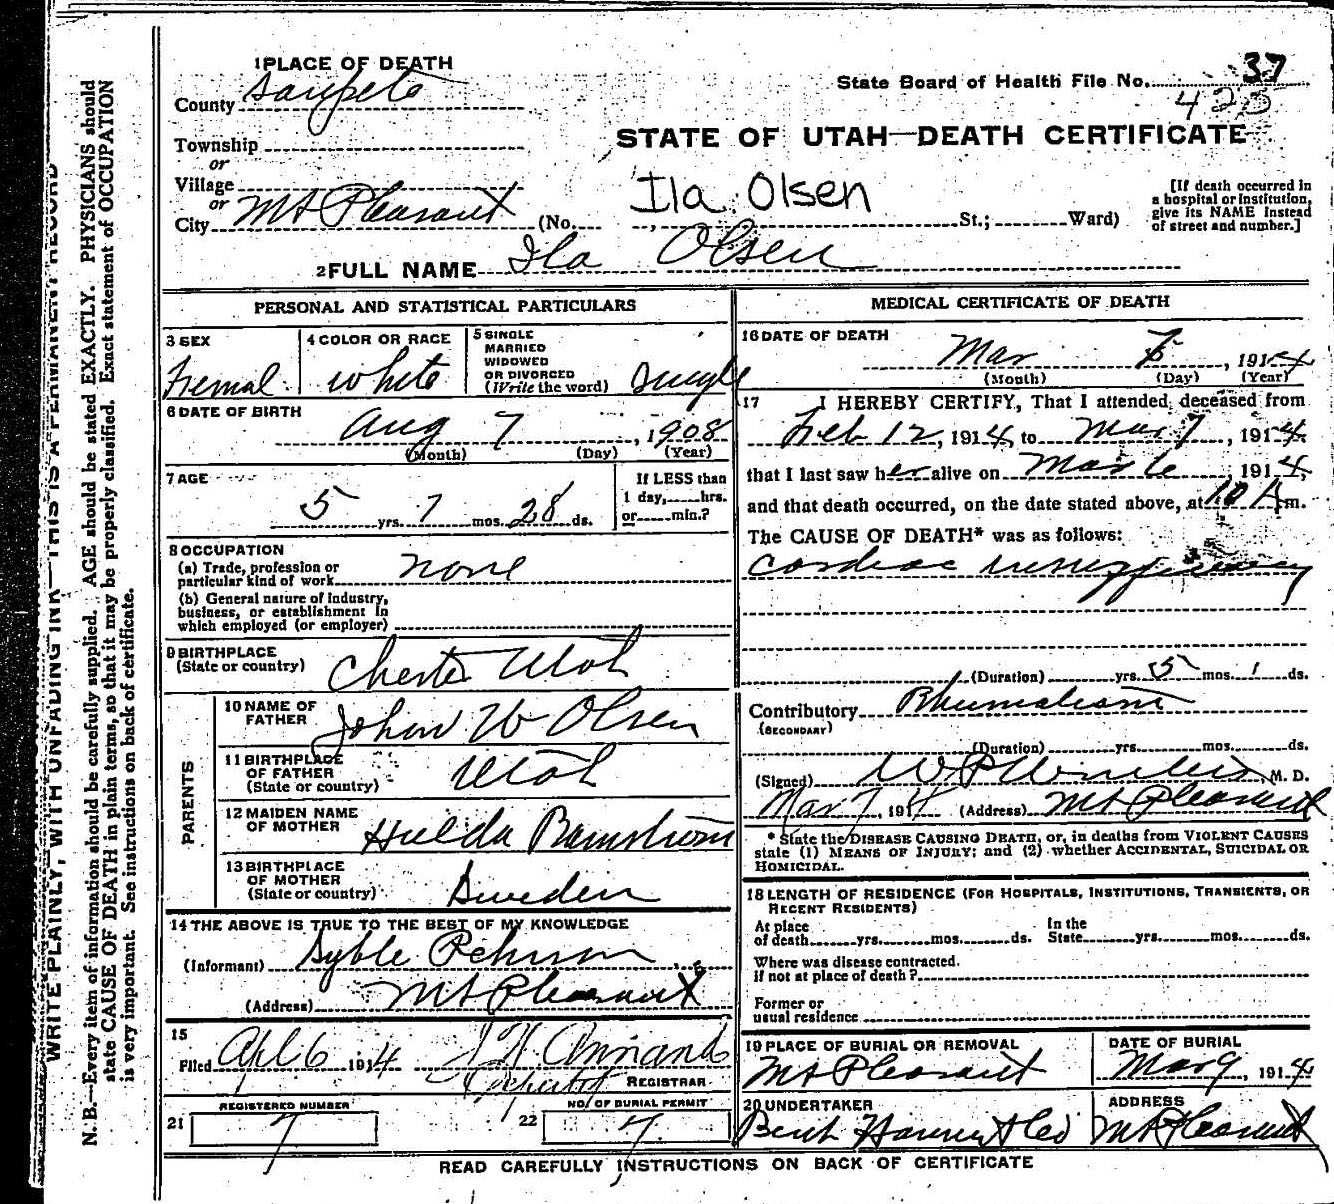 1 PLACE OF DEATH
County Sanpete
State Board of Health File No. 37
425
Township
or
Village
or
City Mt Pleasant (No. St.; Ward)
STATE OF UTAH—DEATH CERTIFICATE
Ila Olsen
[If death occurred in
a hospital or institution,
give its NAME instead
of street and number.]
2 FULL NAME Ila Olsen
PERSONAL AND STATISTICAL PARTICULARS
3 SEX
Femal
4 COLOR OR RACE
white
5 SINGLE
MARRIED
WIDOWED
OR DIVORCED
(Write the word) Single
6 DATE OF BIRTH
Aug 7, 1908
(Month) (Day) (Year)
7 AGE
5 yrs. 7 mos. 28 ds.
If LESS than
1 day, hrs.
or min.?
8 OCCUPATION
(a) Trade, profession or
particular kind of work none
(b) General nature of industry,
business, or establishment in
which employed (or employer)
9 BIRTHPLACE
(State or country) Chester Utah
PARENTS
10 NAME OF
FATHER John W Olsen
11 BIRTHPLACE
OF FATHER
(State or country) Utah
12 MAIDEN NAME
OF MOTHER Hulda
13 BIRTHPLACE
OF MOTHER
(State or country) Sweden
14 THE ABOVE IS TRUE TO THE BEST OF MY KNOWLEDGE
(Informant) Syble
(Address) Mt Pleasant
15
Filed Apl 6 1914
REGISTRAR
REGISTERED NUMBER
21 7
NO. OF BURIAL PERMIT
22 7
MEDICAL CERTIFICATE OF DEATH
16 DATE OF DEATH
Mar , 1914
(Month) (Day) (Year)
17 I HEREBY CERTIFY, That I attended deceased from
Feb 12, 1914, to Mar 7, 1914,
that I last saw her alive on Mar 6, 1914,
and that death occurred, on the date stated above, at 10 A m.
The CAUSE OF DEATH* was as follows:
Cardiac
(Duration) yrs. 5 mos. 1 ds.
Contributory Rhumatism
(SECONDARY)
(Duration) yrs. mos. ds.
(Signed) W P Winters, M. D.
Mar 7, 1914 (Address) Mt Pleasant
* State the DISEASE CAUSING DEATH, or, in deaths from VIOLENT CAUSES
state (1) MEANS OF INJURY; and (2) whether ACCIDENTAL, SUICIDAL OR
HOMICIDAL.
18 LENGTH OF RESIDENCE (FOR HOSPITALS, INSTITUTIONS, TRANSIENTS, OR
RECENT RESIDENTS)
At place
of death yrs. mos. ds.
In the
State yrs. mos. ds.
Where was disease contracted.
if not at place of death?
Former or
usual residence
19 PLACE OF BURIAL OR REMOVAL
Mt Pleasant
DATE OF BURIAL
Mar 9, 1914
20 UNDERTAKER
ADDRESS
Mt Pleasant
READ CAREFULLY INSTRUCTIONS ON BACK OF CERTIFICATE
WRITE PLAINLY, WITH UNFADING INK—THIS IS A PERMANENT RECORD
N. B.—Every item of information should be carefully supplied. AGE should be stated EXACTLY. PHYSICIANS should
state CAUSE OF DEATH in plain terms, so that it may be properly classified. Exact statement of OCCUPATION
is very important. See instructions on back of certificate.